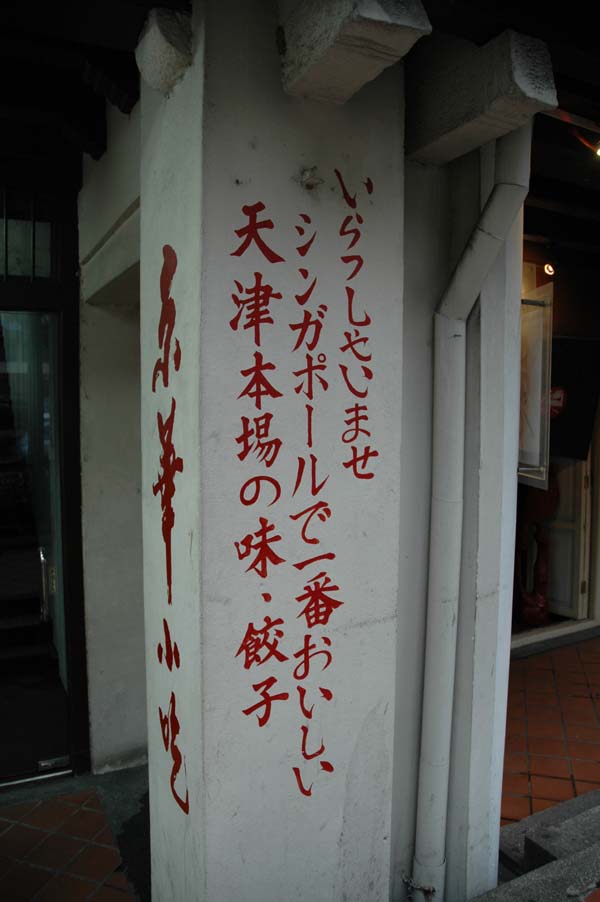 いらっしゃいませ
シンガポールで一番おいしい
天津本場の味・餃子
京華小吃